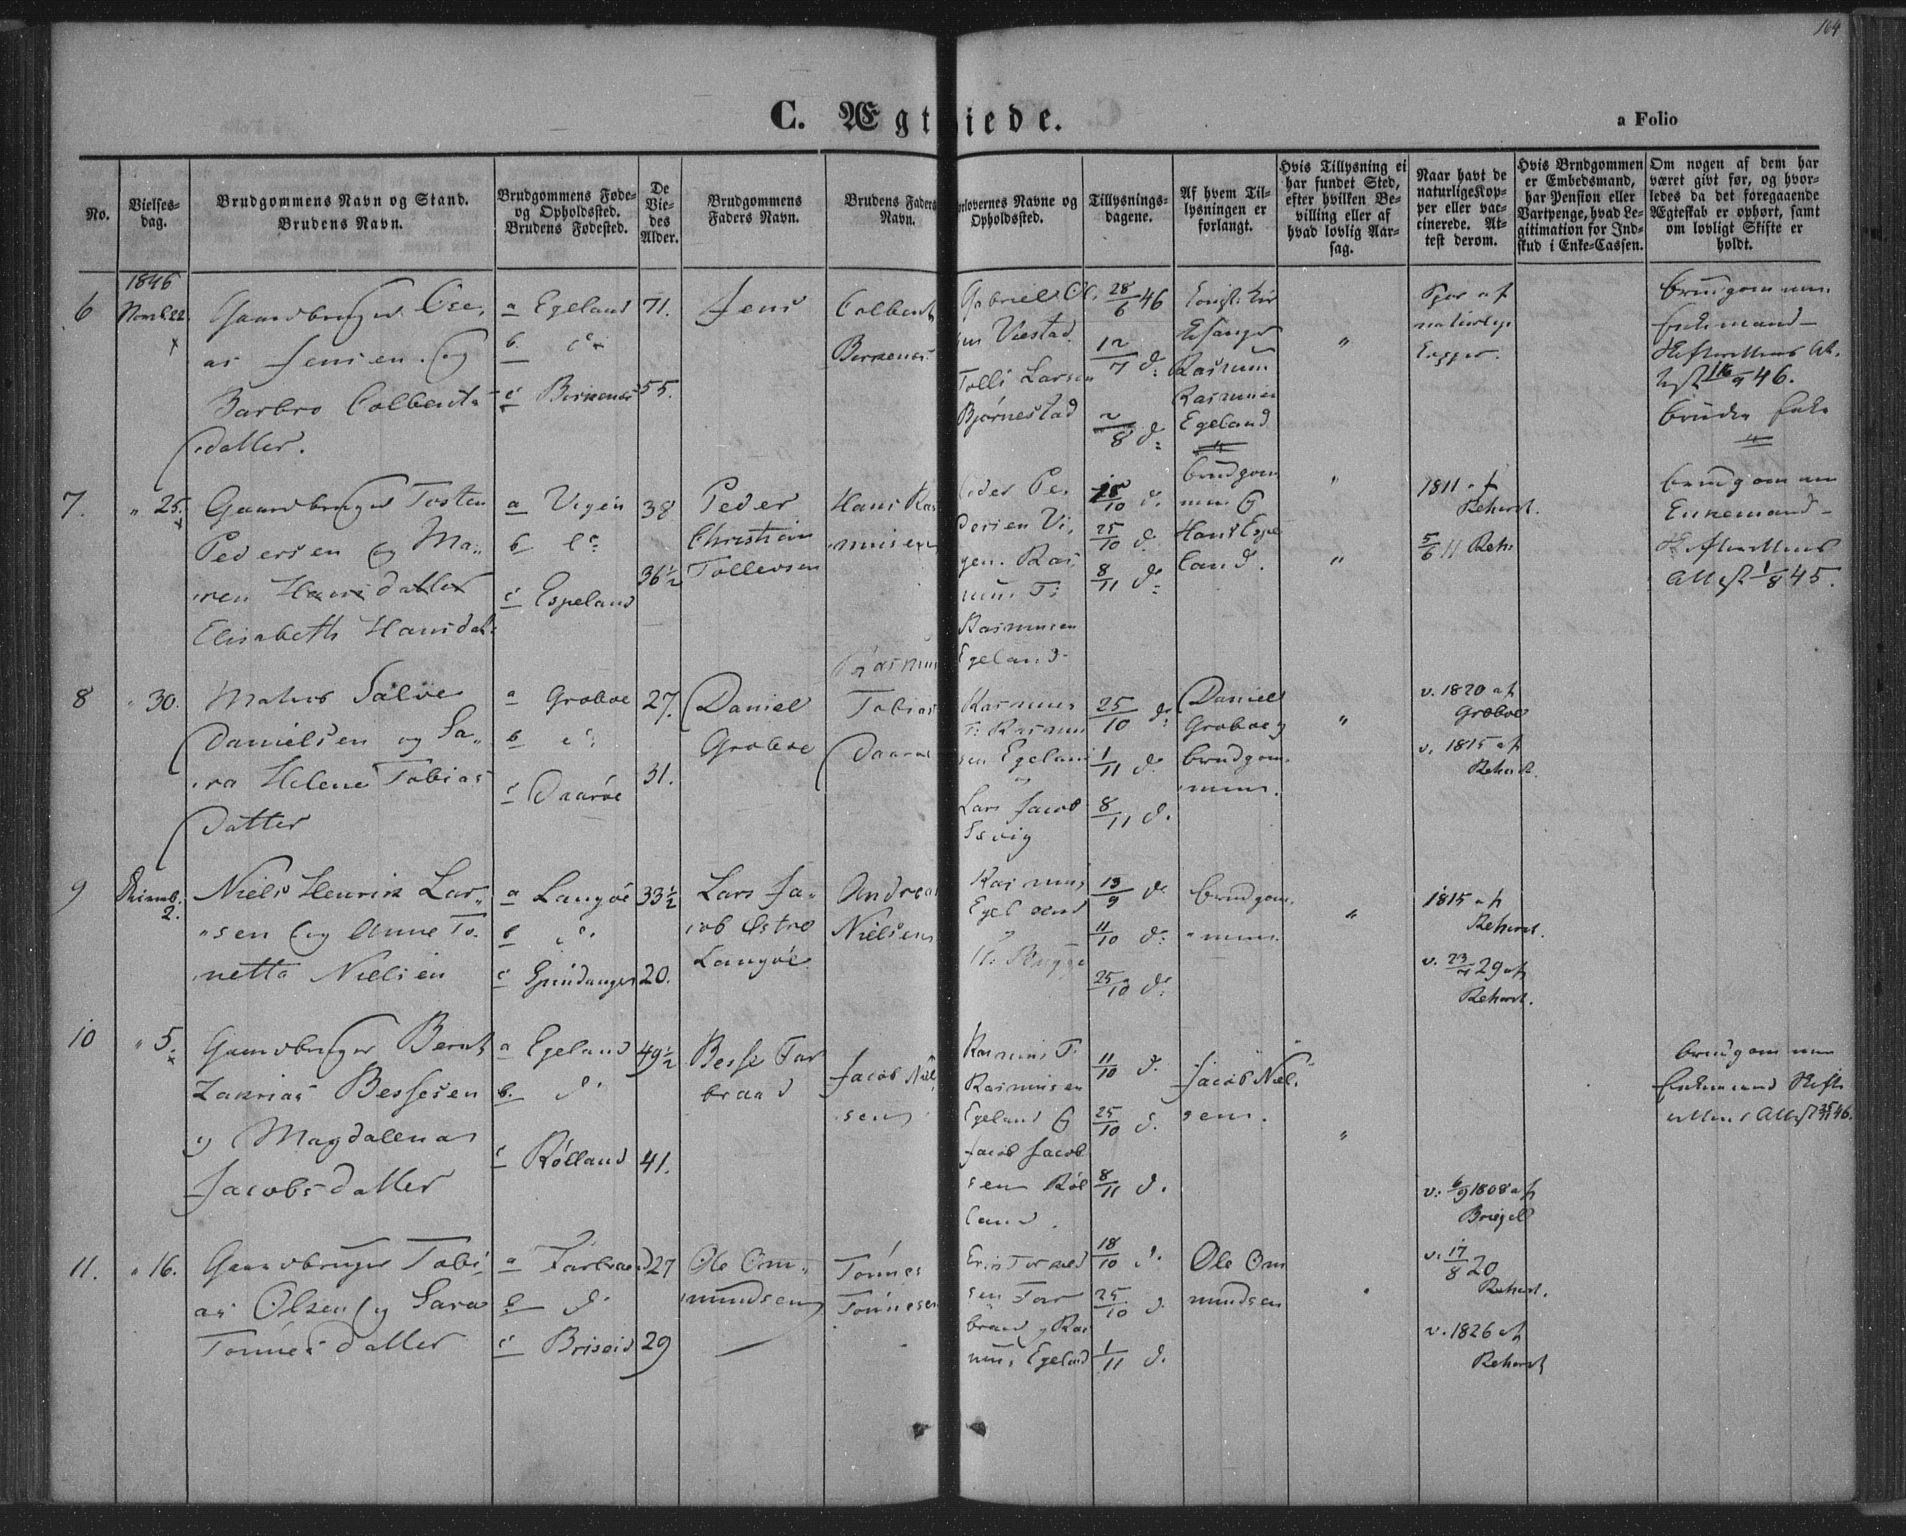 164
C. Ægtviede.
a Folio
No.
Vielses-
dag.
Brudgommens Navn og Stand.
Brudens Navn.
Brudgommens Føde-
og Opholdssted.
Brudens Fødested.
De
Vie-
des
Alder.
Brudgommens
Faders Navn.
Brudens Faders
Navn.
Forlovernes Navne og
Opholdssted.
Tillysnings-
dagene.
Af hvem Til-
lysningen er
forlangt.
Hvis Tillysning ei
har fundet Sted,
efter hvilken Be-
villing eller af
hvad lovlig Aar-
sag.
Naar havt de
naturlige Kop-
per eller vac-
cinerede. At-
test derom.
Hvis Brudgommen
er Embedsmand,
har Pension eller
Vartpenge, hvad Le-
gitimation for Ind-
skud i Enke-Cassen.
Om nogen af dem har
været givt før, og hvor-
ledes da det foregaaende
Ægteskab er ophørt, samt
om lovligt Skifte er
holdt.
1846
6
Novb. 22.
Gaardbruger
as Jensen og
Barbro Colbents
datter.
a Egeland
b do
c Birkenes
71.
55.
Jens
Colbent
Birkenes
Gabriel Ol
sen Viestad
Tolli Larsen
Bjørnestad
28/6 46
12/7 d:
2/8 d:
Rasmus
Rasmusen
Egeland
"
Spor af
naturlige
Kopper.
brudgommen
Enkemand
Skifterettens At-
test 16/9 46.
bruden Enke
7.
" 25.
Gaardbruger Tosten
Pedersen og Ma-
ren Hansdatter
Elisabeth Hansdat
a Vigen
b do
c Espeland
38
36½
Peder
Christian
Tollevsen
Hans Ras
musen
Peder Pe-
dersen Vi-
gen. Ras
mus T:
Rasmusen
Egeland
18/10 d.
25/10 d.
8/11 d:
brudgom
men &
Hans Espe
land.
"
"
1811 af
Rehorst.
5/6 11 Reh:
brudgommen
Enkemand
Skifterettens
Attest 1/8 45.
8
" 30.
Matros Salve
Danielsen og Sa-
ra Helene Tobias
Datter
a Groboe
b do
c Daarøe
27.
31.
Daniel
Groboe
Rasmus
Tobias
Daarøe
Rasmus
T: Rasmu
sen Egeland
Lars Jacob
25/10 d:
1/11 d.
8/11 d.
Daniel
Groboe
brudgom-
men.
"
v. 1820 af
Groboe
v. 1815 af
Rehorst.
9
Decemb.
2.
Niels Henrik Lar-
sen og Anne To-
netta Nielsen
a Langøe
b do
c Grundanger
33½
20.
Lars Ja-
cob Østre
Langøe
Andreas
Nielsen
Rasmus
Egeland
13/9 d.
11/10 d:
25/10 d:
brudgom-
men.
"
1815 af
Rehorst.
29 af
Rehorst.
10
" 5.
Gaardbruger Bernt
Zakrias Bessesen
og Magdalena
Jacobsdatter
a Egeland
b. do
c Rølland
49½
41.
Besse Far
braad
Jacob Niel
sen
Rasmus T:
Rasmusen
Egeland &
Jacob Jacob
sen Røl
land.
11/10 d.
25/10 d.
8/11 d.
Jacob Niel-
sen.
"
v: 6/9 1808 af
brudgommen
Enkemand Skifte
rettens Attest 46.
11.
" 16.
Gaardbruger Tobi-
as Olsen og Sara
Tønnesdatter
a Farbraad
b do
c Briseid
27
29
Ole Om-
mundsen
Tønnes
Tønnesen
sen Far
braad og Ras
mus Egeland
18/10 d.
25/10 d.
1/11 d.
Ole Om
mundsen
v. 17/8 20
Rehorst.
v. 1826 af
Rehorst